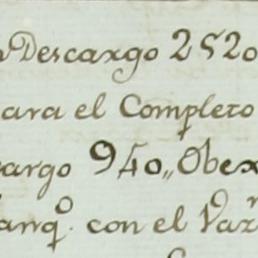 Descargo 2520
ara el Completo
argo 940,, Obex
anq.º con el Var